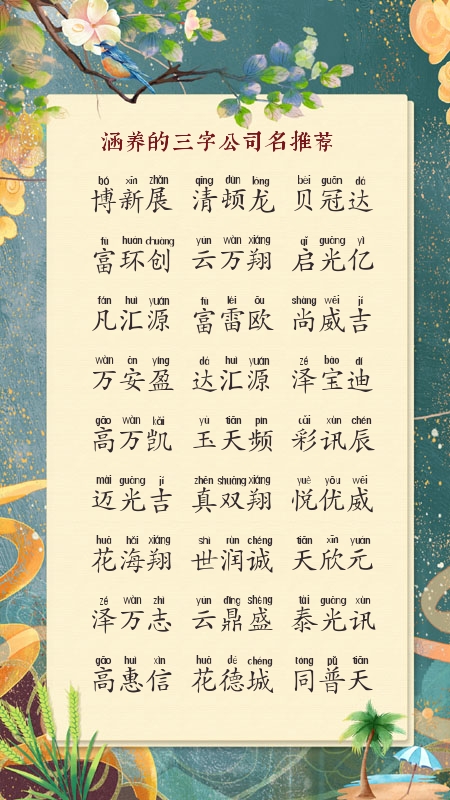 涵养的三字公司名推荐
bó xīn zhǎn qīng dùn lóng bèi guān dá
博新展 清顿龙 贝冠达
fù huán chuàng yún wàn xiáng qǐ guāng yì
富环创 云万翔 启光亿
fán huì yuán fù léi ōu shàng wēi jí
凡汇源 富雷欧 尚威吉
wàn ān yíng dá huì yuán zé bǎo dí
万安盈 达汇源 泽宝迪
gāo wàn kǎi yù tiān pín cǎi xùn chén
高万凯 玉天频 彩讯辰
mài guāng jí zhēn shuāng xiáng yuè yōu wēi
迈光吉 真双翔 悦优威
huā hǎi xiáng shì rùn chéng tiān xīn yuán
花海翔 世润诚 天欣元
zé wàn zhì yún dǐng shèng tài guāng xùn
泽万志 云鼎盛 泰光讯
gāo huì xìn huā dé chéng tóng pǔ tiān
高惠信 花德城 同普天